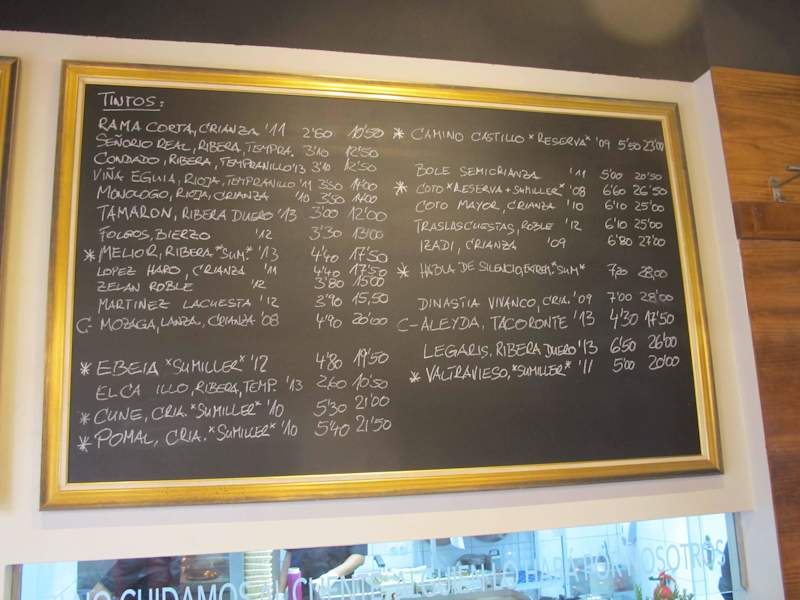 TINTOS:
RAMA CORTA, CRIANZA '11 2'60 10'50
SEÑORIO REAL, RIBERA, TEMPRA. 3'10 12'50
CONDADO, RIBERA, TEMPRANILLO '13 3'10 12'50
VIÑA EGUIA, RIOJA, TEMPRANILLO '11 3'50 14'00
MONOLOGO, RIOJA, CRIANZA '10 3'50 14'00
TAMARON, RIBERA DUERO '13 3'00 12'00
FOLGOS, BIERZO '12 3'30 13'00
* MELIOR, RIBERA *SUM.* '13 4'40 17'50
LOPEZ HARO, CRIANZA '11 4'40 17'50
ZELAN ROBLE '12 3'80 15'00
MARTINEZ LACUESTA '12 3'90 15,50
C- MOZAGA, LANZA, CRIANZA '08 4'90 20'00
* EBEIA *SUMILLER* '12 4'80 19'50
ELCA ILLO, RIBERA, TEMP. '13 2'60 10'50
* CUNE, CRIA. *SUMILLER* '10 5'30 21'00
* POMAL, CRIA. *SUMILLER* '10 5'40 21'50
* CAMINO CASTILLO *RESERVA* '09 5'50 23'00
BOLE SEMICRIANZA '11 5'00 20'50
* COTO *RESERVA + SUMILLER* '08 6'60 26'50
COTO MAYOR, CRIANZA '10 6'10 25'00
TRASLASCUESTAS, ROBLE '12 6'10 25'00
IZADI, CRIANZA '09 6'80 27'00
* HABLA DE SILENCIO, EXTREM. *SUM* 7'20 28,00
DINASTIA VIVANCO, CRIA. '09 7'00 28'00
C- ALEYDA, TACORONTE '13 4'30 17'50
LEGARIS, RIBERA DUERO '13 6'50 26'00
* VALTRAVIESO, *SUMILLER* '11 5'00 20'00
CUIDAMOS